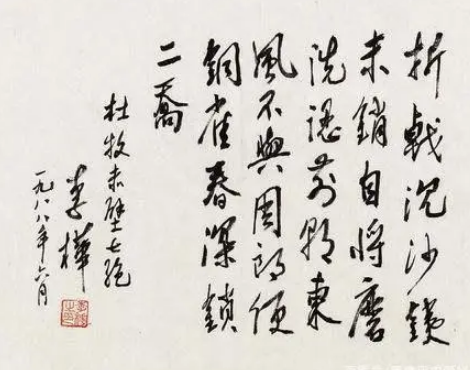 折戟沉沙鐵
未銷自將磨
洗認前朝東
風不與周郎便
銅雀春深鎖
二喬
杜牧赤壁七絕
李樺
一九八八年六月